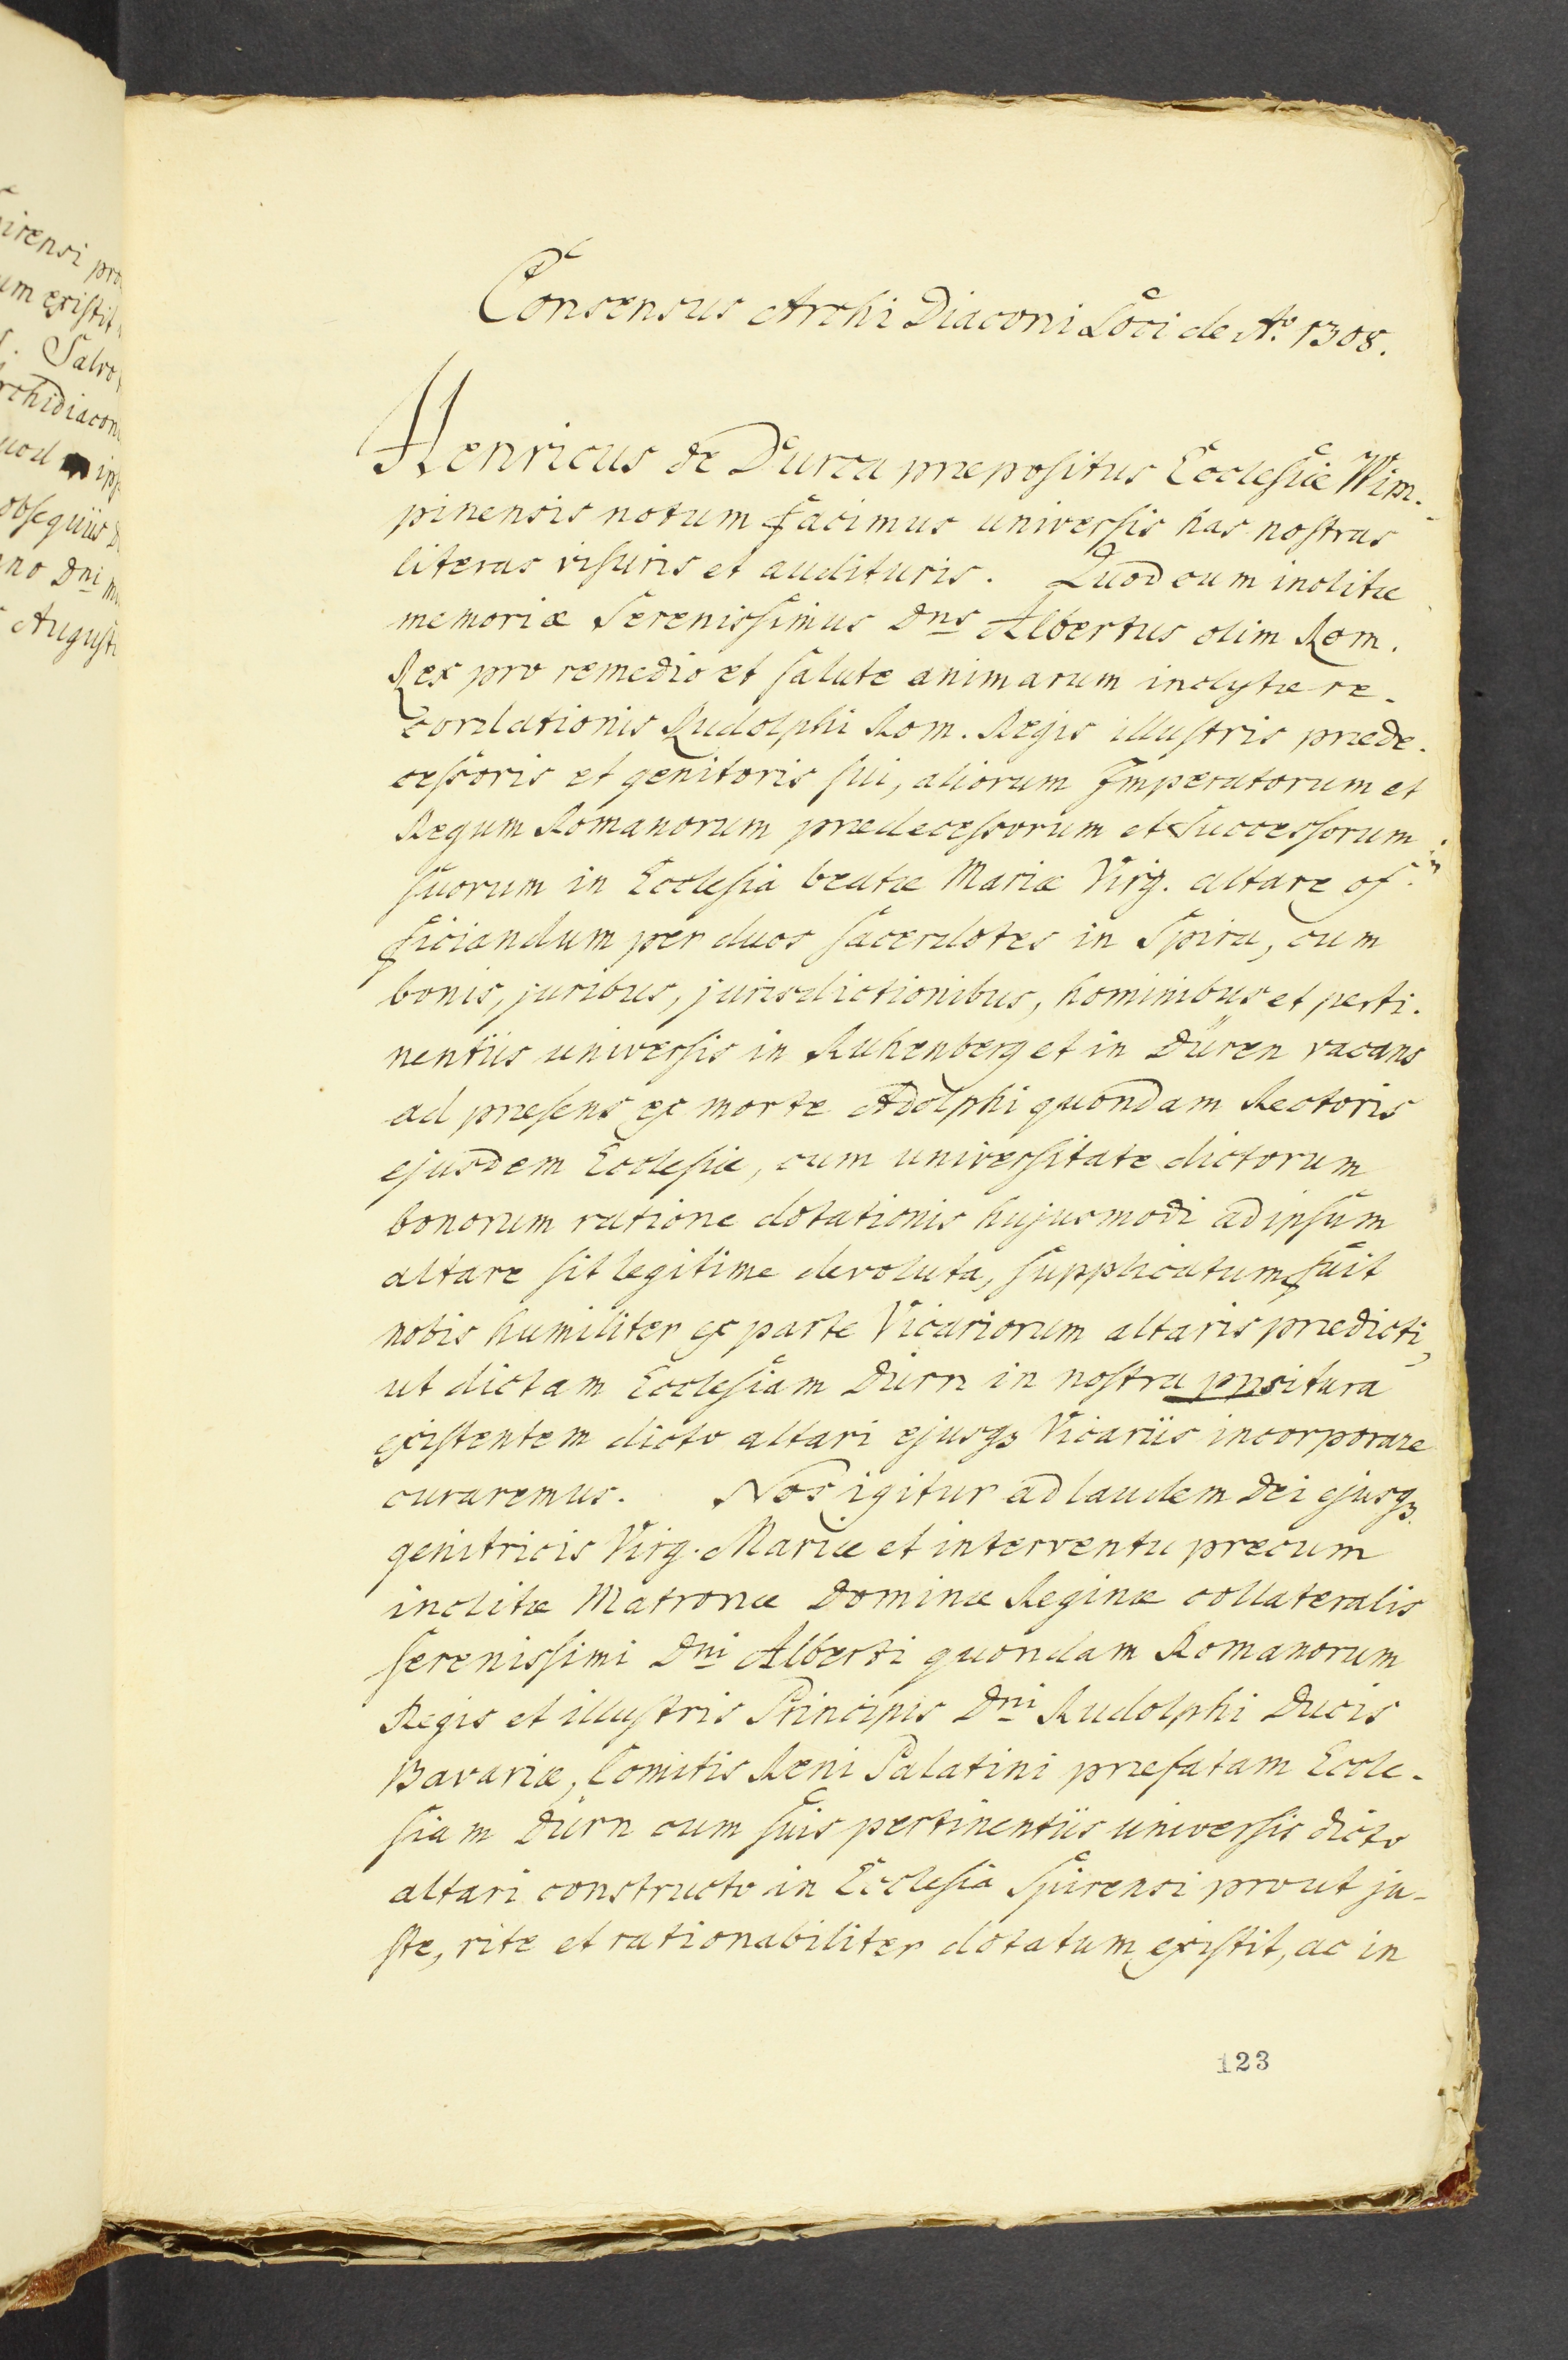 irensi pro
um existit
. Salvo
rchidiacon
uod ips
obsequiis D
no Dni m
Augusti
Consensus Archi Diaconi Loci de Ao. 1308.
Henricus de Durca præpositus Ecclesiæ Wim-
pinensis notum facimus universis has nostras
literas visuris et audituris. Quod cum inclitæ
memoriæ Serenissimus Dns Albertus olim Rom.
Rex pro remedio et salute animarum inclytæ re-
cordationis Rudolphi Rom. Regis illustris præde-
cessoris et genitoris sui, aliorum Imperatorum et
Regum Romanorum prædecessorum et Successorum
suorum in Ecclesia beatæ Mariæ Virg. altare of-
ficiandum per duos sacerdotes in Spira, cum
bonis, juribus, jurisdictionibus, hominibus et perti-
nentiis universis in Ruhenberg et in Düren vacans
ad præsens ex morte Adolphi quondam Rectoris
ejusdem Ecclesiæ, cum universitate dictorum
bonorum ratione dotationis hujusmodi ad ipsum
altare sit legitime devoluta, supplicatum fuit
nobis humiliter ex parte Vicariorum altaris prædicti,
ut dictam Ecclesiam Dürn in nostra ppsitura
existentem dicto altari ejusqꝫ Vicariis incorporare
curaremus. Nos igitur ad laudem Dei ejusqꝫ
genitricis Virg. Mariæ et interventu precum
inclitæ Matronæ Dominæ Reginæ collateralis
serenissimi Dni Alberti quondam Romanorum
Regis et illustris Principis Dni Rudolphi Ducis
Bavariæ, Comitis Reni Palatini præfatam Eccle-
siam Dürn cum suis pertinentiis universis dicto
altari constructo in Ecclesia Spirensi prout ju-
ste, rite et rationabiliter dotatum existit, ac in
123